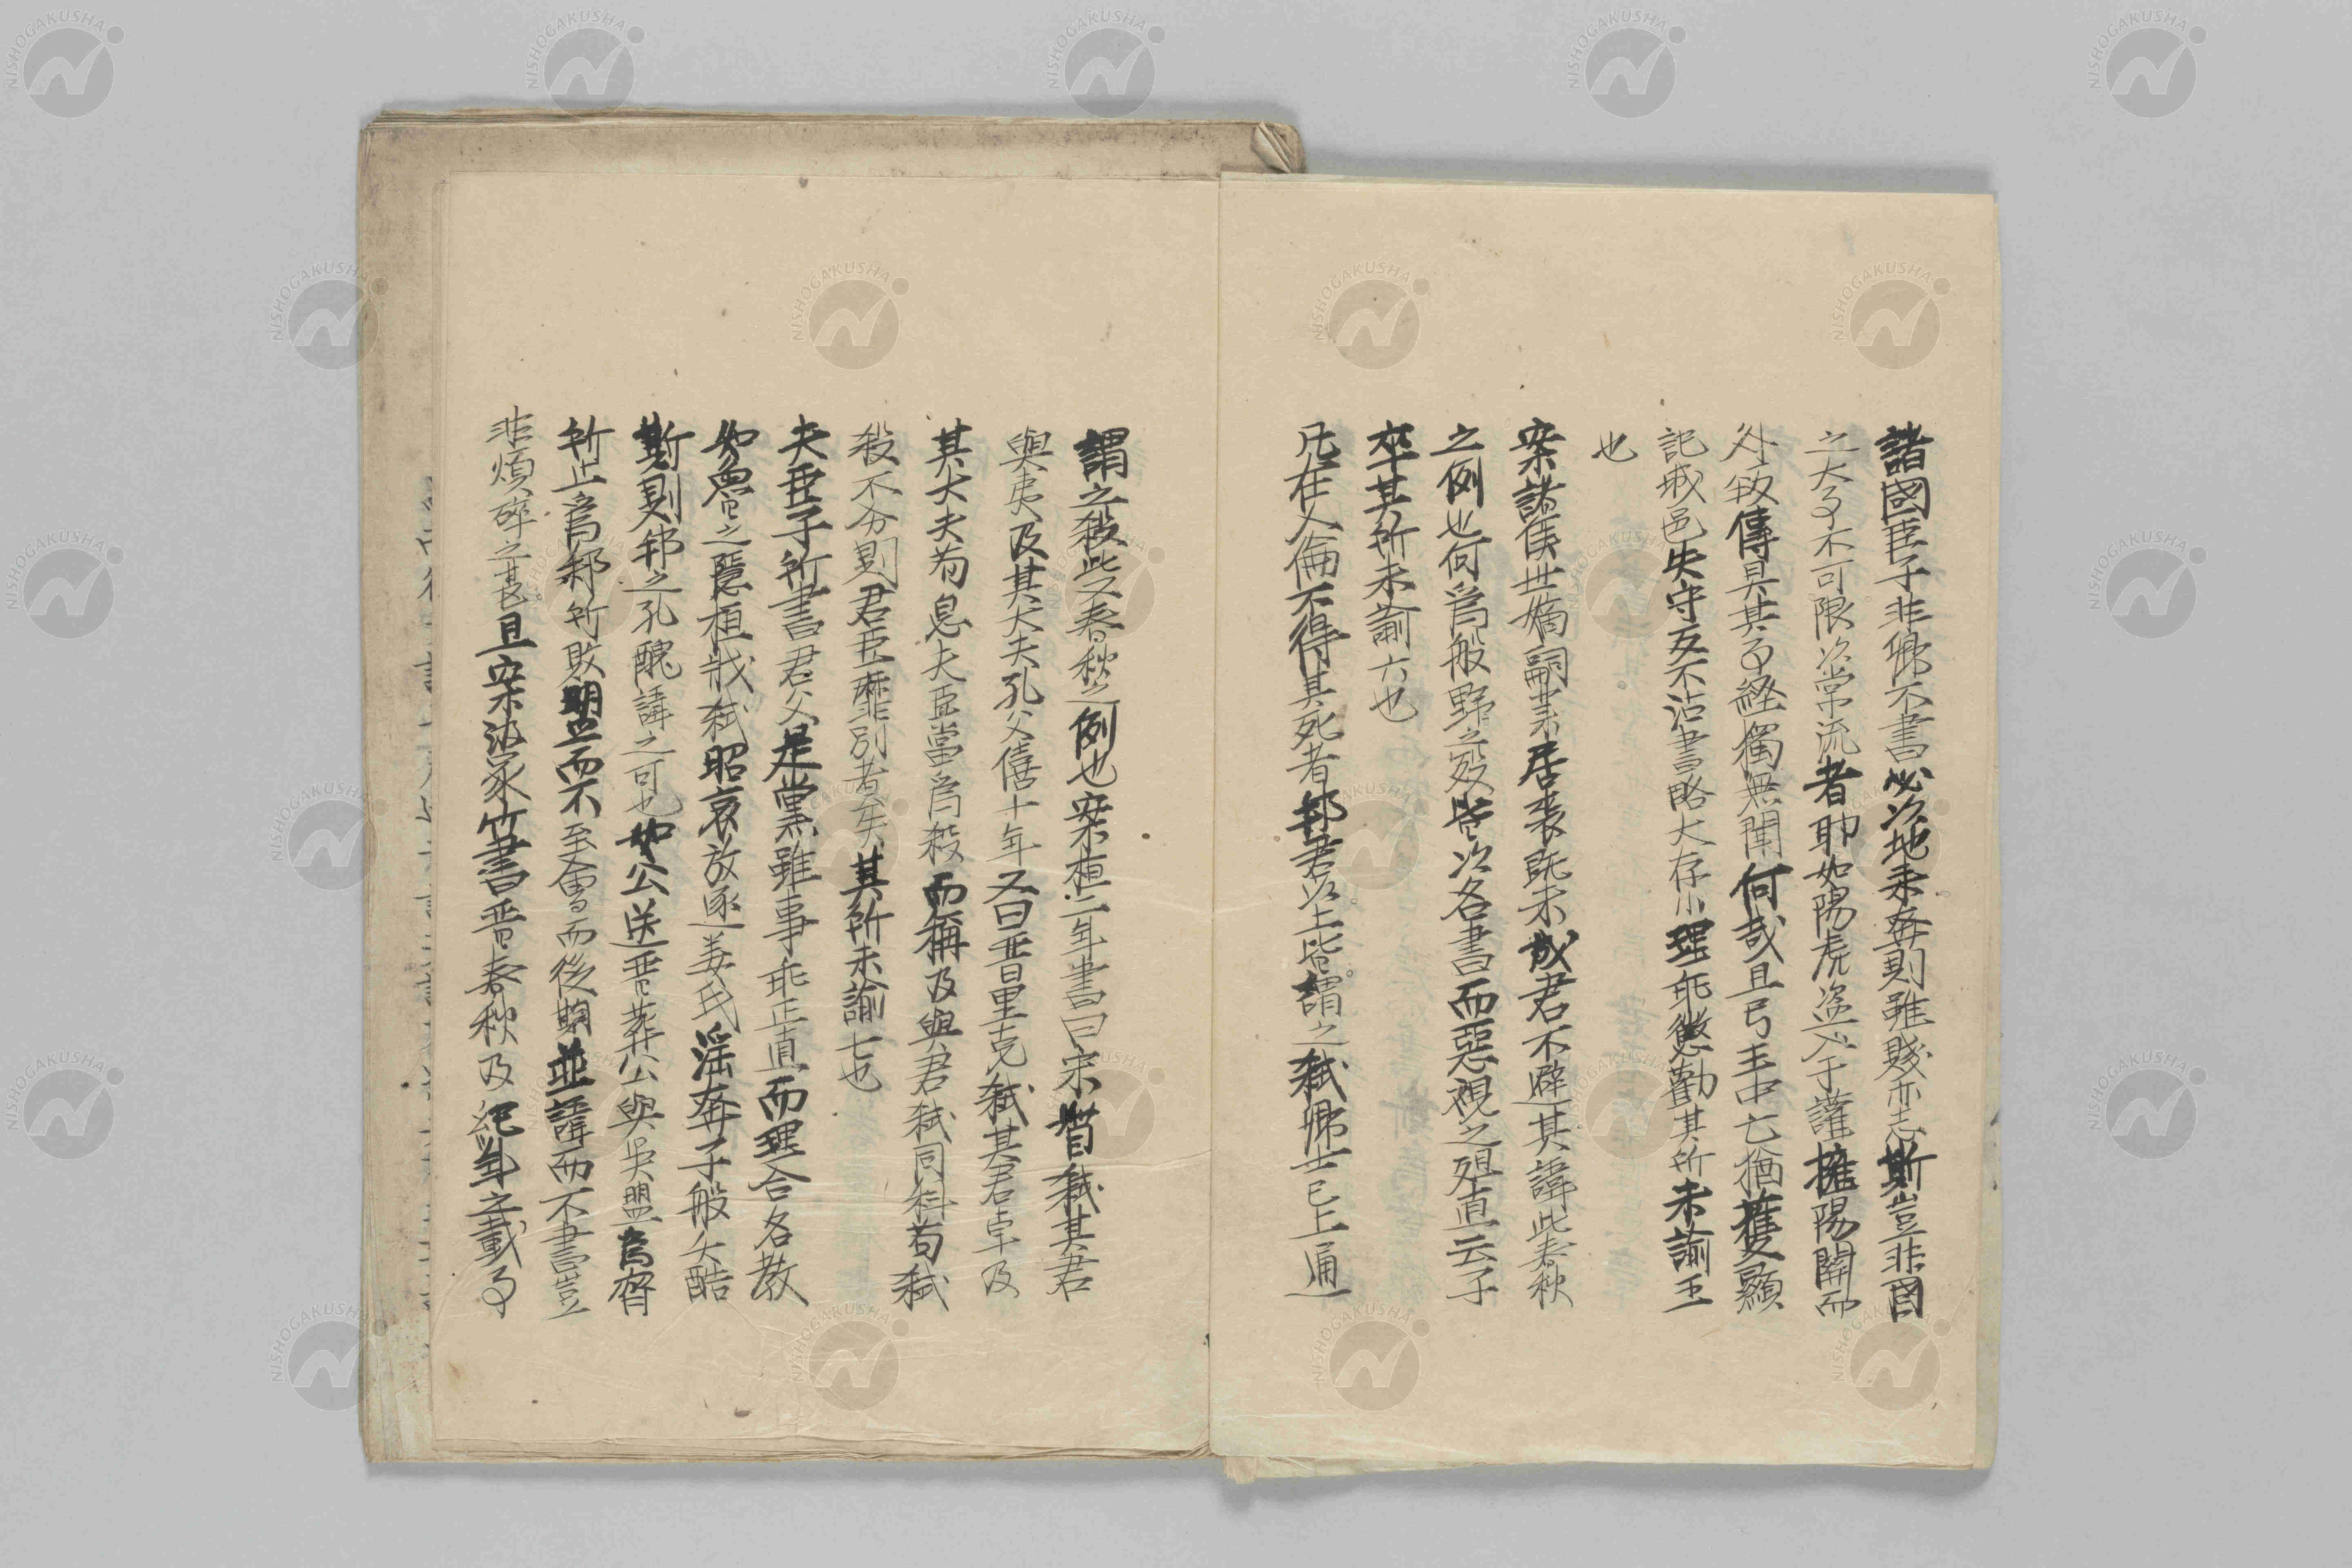 諸國臣子非卿不書必以地来奔則雖賤亦志斯豈非國
之大事不可限以常流者耶如陽虎盗入于讙擁陽關而
外叛傳具其事経獨無聞何哉且弓玉中亡猶獲顯
記城邑失守反不沾書略大存小理乖懲勸其所未諭五
也
案諸侯世嫡嗣業居喪既未成君不避其諱此春秋
之例也何為般野之歿皆以名書而惡視之殂直云子
卒其所未諭六也
凡在人倫不得其死者邦君以上皆謂之弑卿士已上通
謂之殺此又春秋之例也案桓二年書曰宋督弑其君
與夷及其大夫孔父僖十年又曰晋里克弑其君卓及
其大夫荀息夫臣當為殺而稱及與君弑同科苟弑
殺不分則君臣靡別者矣其所未諭七也
夫臣子所書君父是黨雖事乖正直而理合名教
如魯之隠桓戕弑昭哀放逐姜氏淫奔子般夭酷
斯則邦之孔醜諱之可也如公送晋葬公與呉盟為齊
所止為邾所敗盟而不至會而後期並諱而不書豈
非煩碎之甚且案汲冢竹書晋春秋及紀年之載事